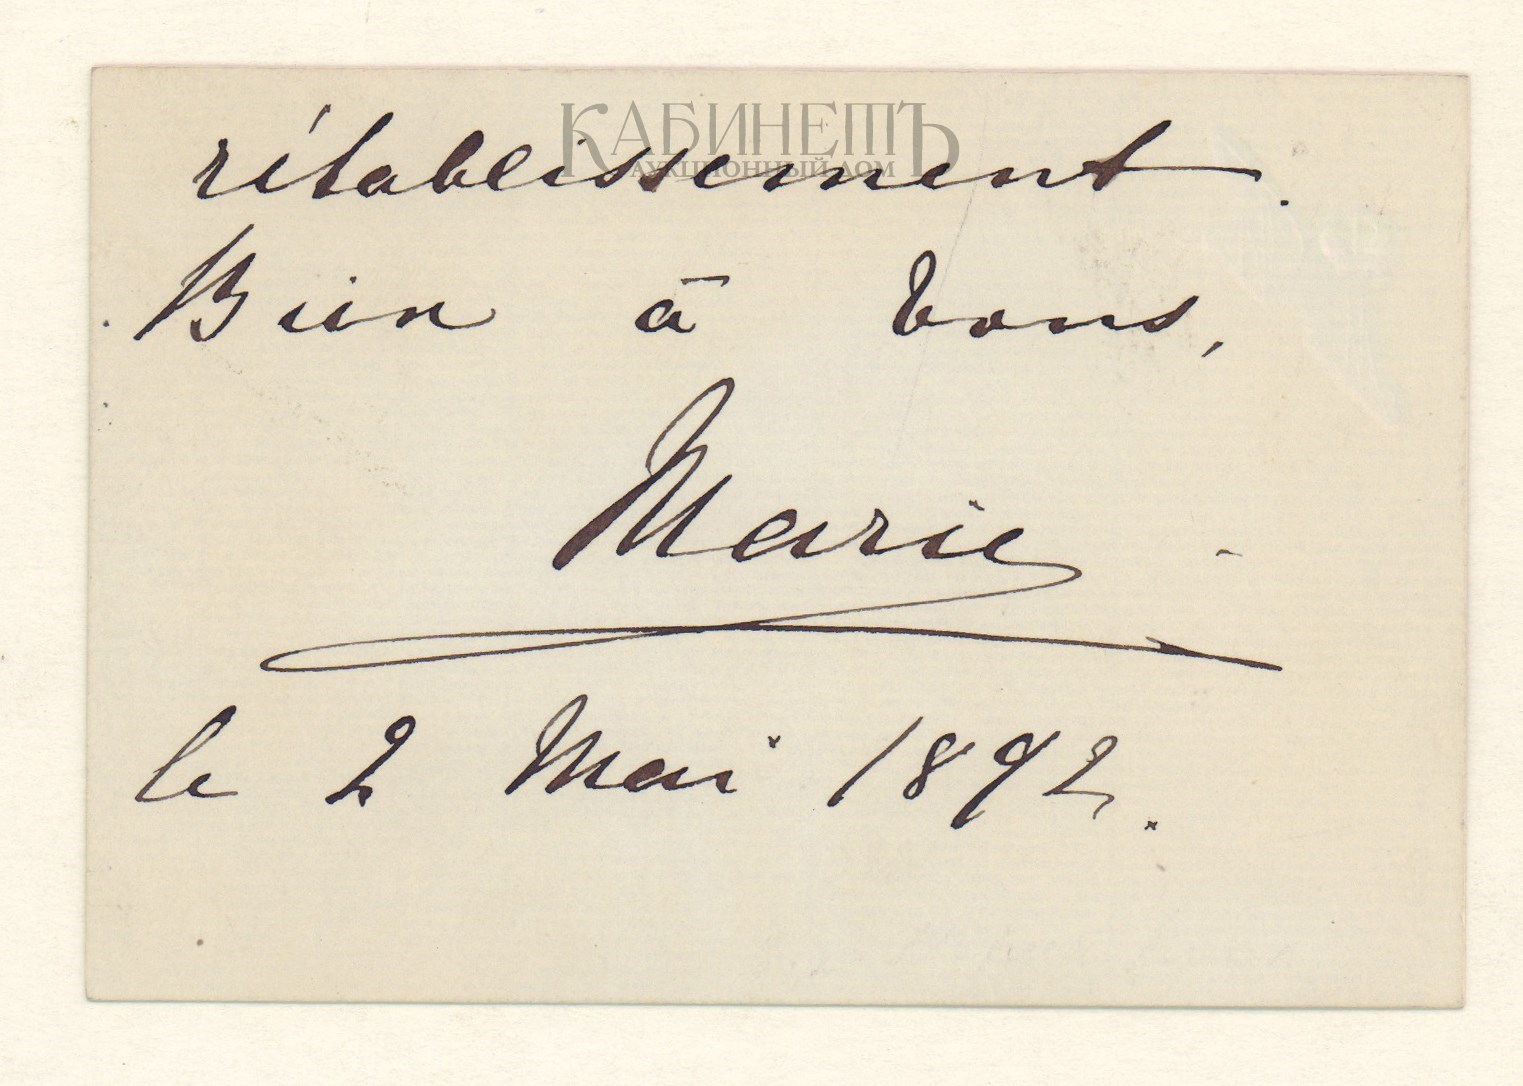 КАБИНЕТЪ
АУКЦИОННЫЙ ДОМ
rétablissement.
Bien à Vous,
Marie
le 2 Mai 1892.